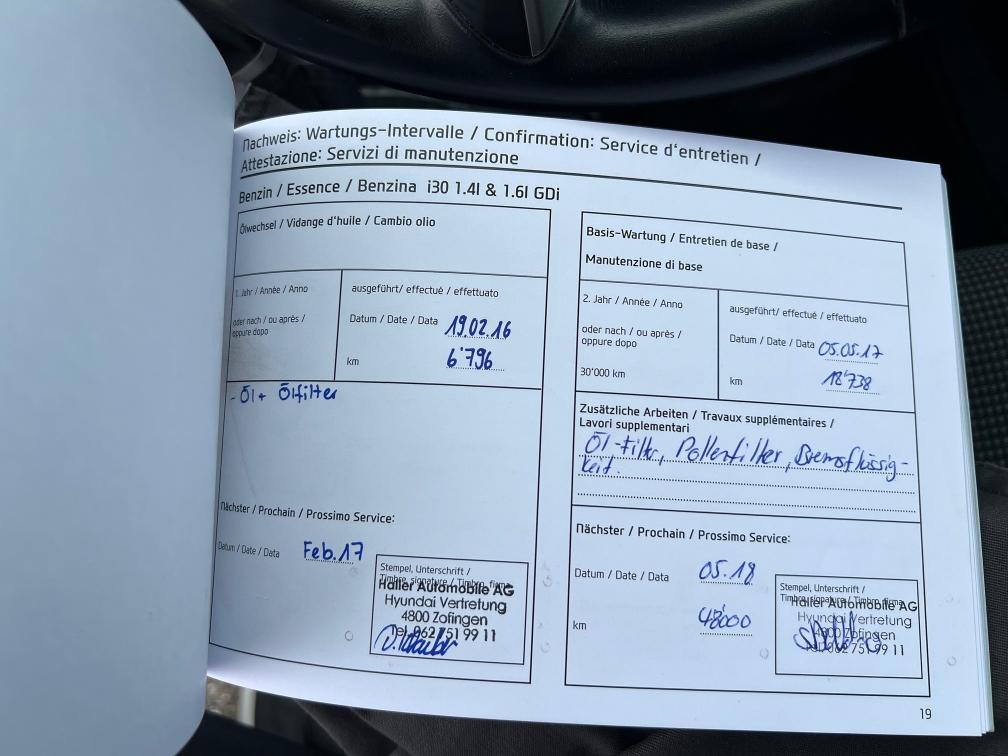 Nachweis: Wartungs-Intervalle / Confirmation: Service d'entretien /
Attestazione: Servizi di manutenzione
Benzin / Essence / Benzina i30 1.4l & 1.6l GDi
Ölwechsel / Vidange d'huile / Cambio olio
1. Jahr / Année / Anno
oder nach / ou après /
oppure dopo
ausgeführt/ effectué / effettuato
Datum / Date / Data 19.02.16
km 6'796
- Öl + Ölfilter
Nächster / Prochain / Prossimo Service:
Datum / Date / Data Feb. 17
Stempel, Unterschrift /
Timbre, signature / Timbro, firma
Haller Automobile AG
Hyundai Vertretung
4800 Zofingen
Tel. 062 751 99 11
Basis-Wartung / Entretien de base /
Manutenzione di base
2. Jahr / Année / Anno
oder nach / ou après /
oppure dopo
30'000 km
ausgeführt/ effectué / effettuato
Datum / Date / Data 05.05.17
km 18'738
Zusätzliche Arbeiten / Travaux supplémentaires /
Lavori supplementari
Öl-Filter, Pollenfilter, Bremsflüssig-
keit.
Nächster / Prochain / Prossimo Service:
Datum / Date / Data 05.18
km 48'000
Stempel, Unterschrift /
Timbre, signature / Timbro, firma
Haller Automobile AG
Hyundai Vertretung
4800 Zofingen
Tel. 062 751 99 11
19